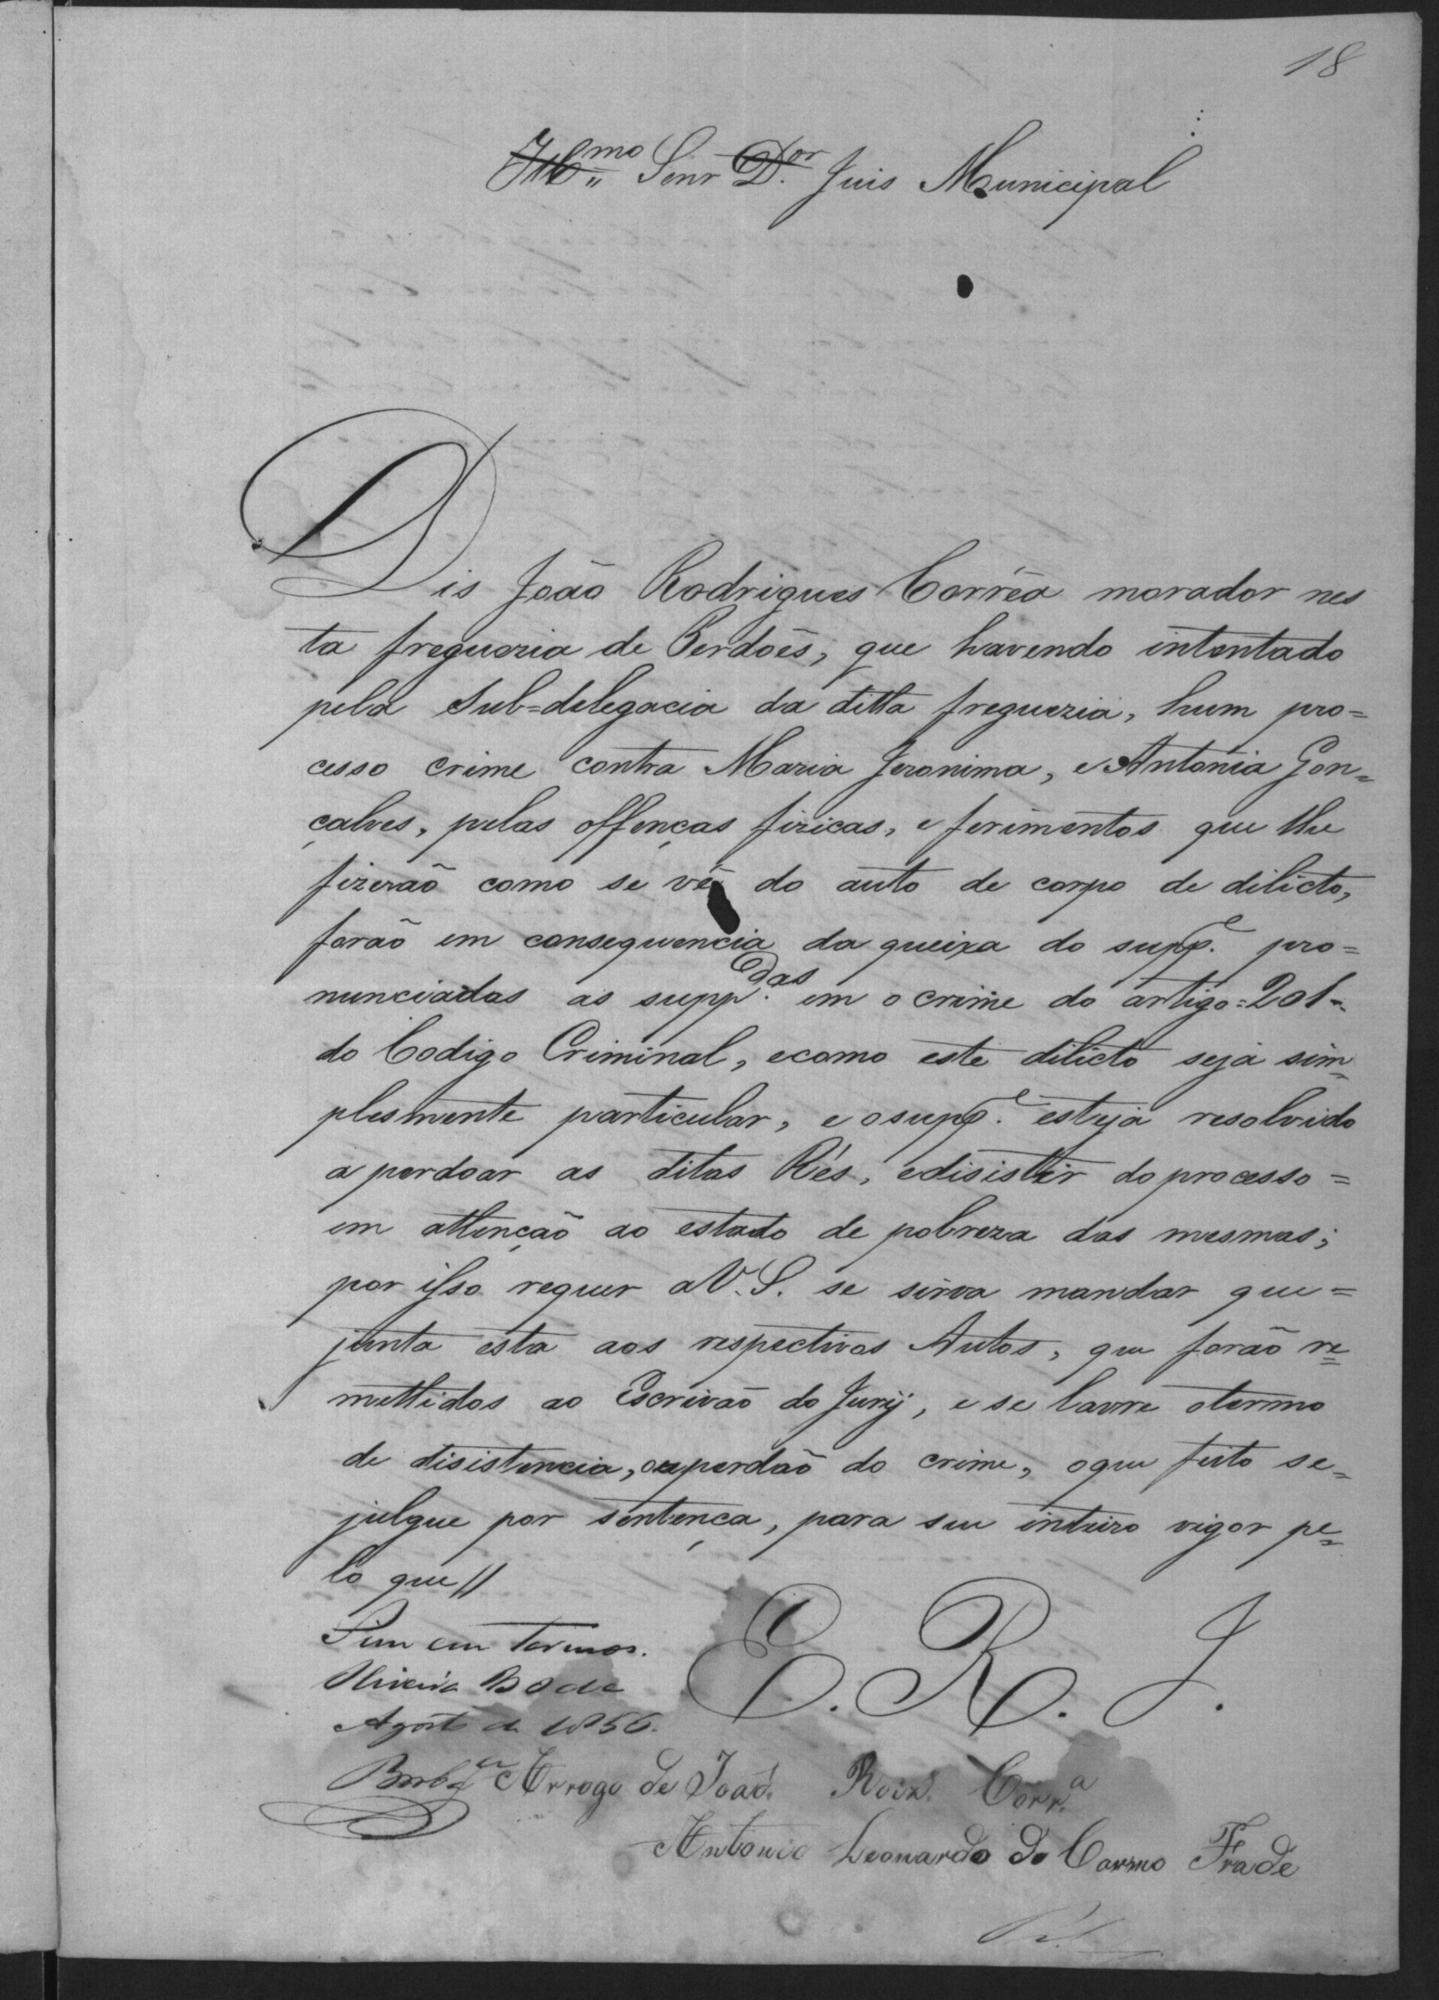 18
Illmo Senr Dor Juis Municipal
Dis João Rodrigues Corrêa morador nes
ta freguezia de Perdoẽs, que havendo intentado
pela Sub=delegacia da ditta freguezia, hum pro=
cesso crime contra Maria Jeronima, e Antonia Gon=
çalves, pelas offenças fizicas, e ferimentos que lhe
fizeraõ como se vê do auto de corpo de dilicto,
foraõ em consequencia da queixa do suppe. pro=
nunciadas as suppdas. em o crime do artigo=201=
do Codigo Criminal, ecomo este dilicto seja sim=
plesmente particular, e osuppe. esteja resolvido
a perdoar as ditas Rés, edisistir do processo=
em attençaõ ao estado de pobreza das mesmas;
por isso requer aV. S. se sirva mandar que=
junta esta aos respectivos Autos, que foraõ re=
mettidos ao Escrivaõ do Jury, e se lavre otermo
de disistencia, ouperdaõ do crime, oque feito se=
julgue por sentença, para seu inteiro vigor pe=
lo que //
E. R. J.
Sim em termos.
Oliveira 30 de
Agosto de 1856.
Arrogo de Joaõ Roiz. Corra.
Antonio Leonardo do Carmo Frade